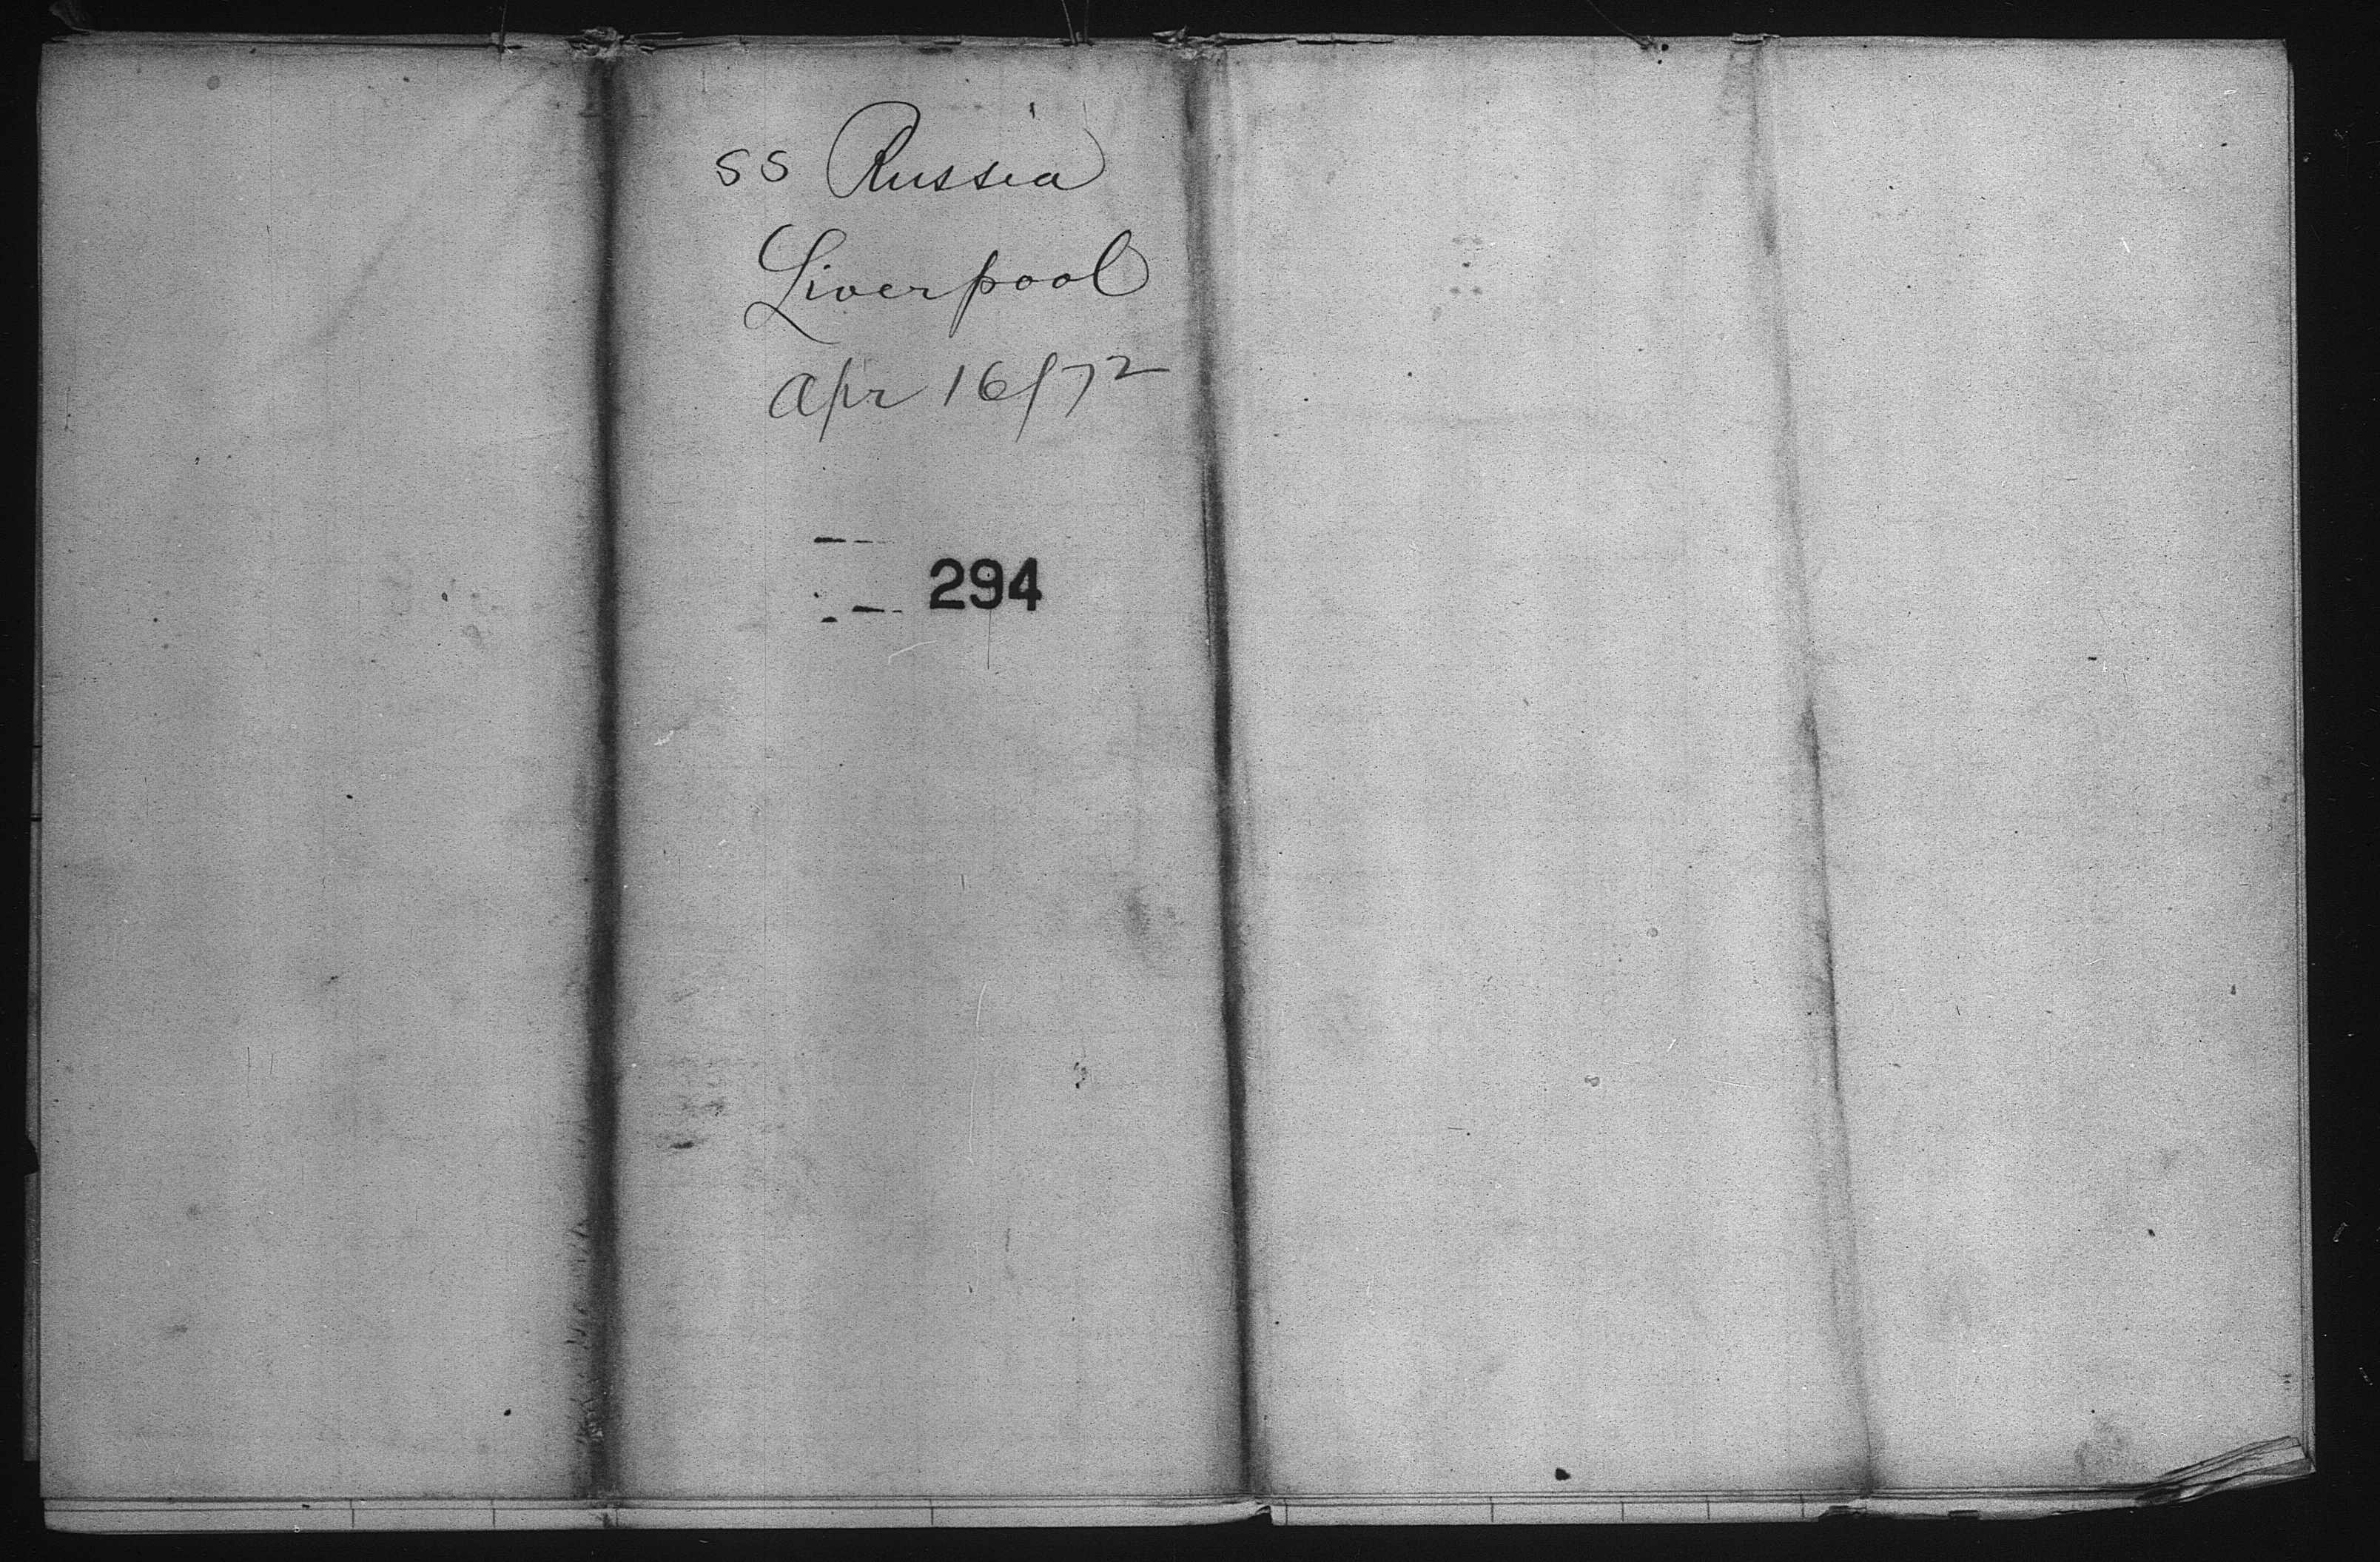 SS Russia
Liverpool
Apr 16/72
294